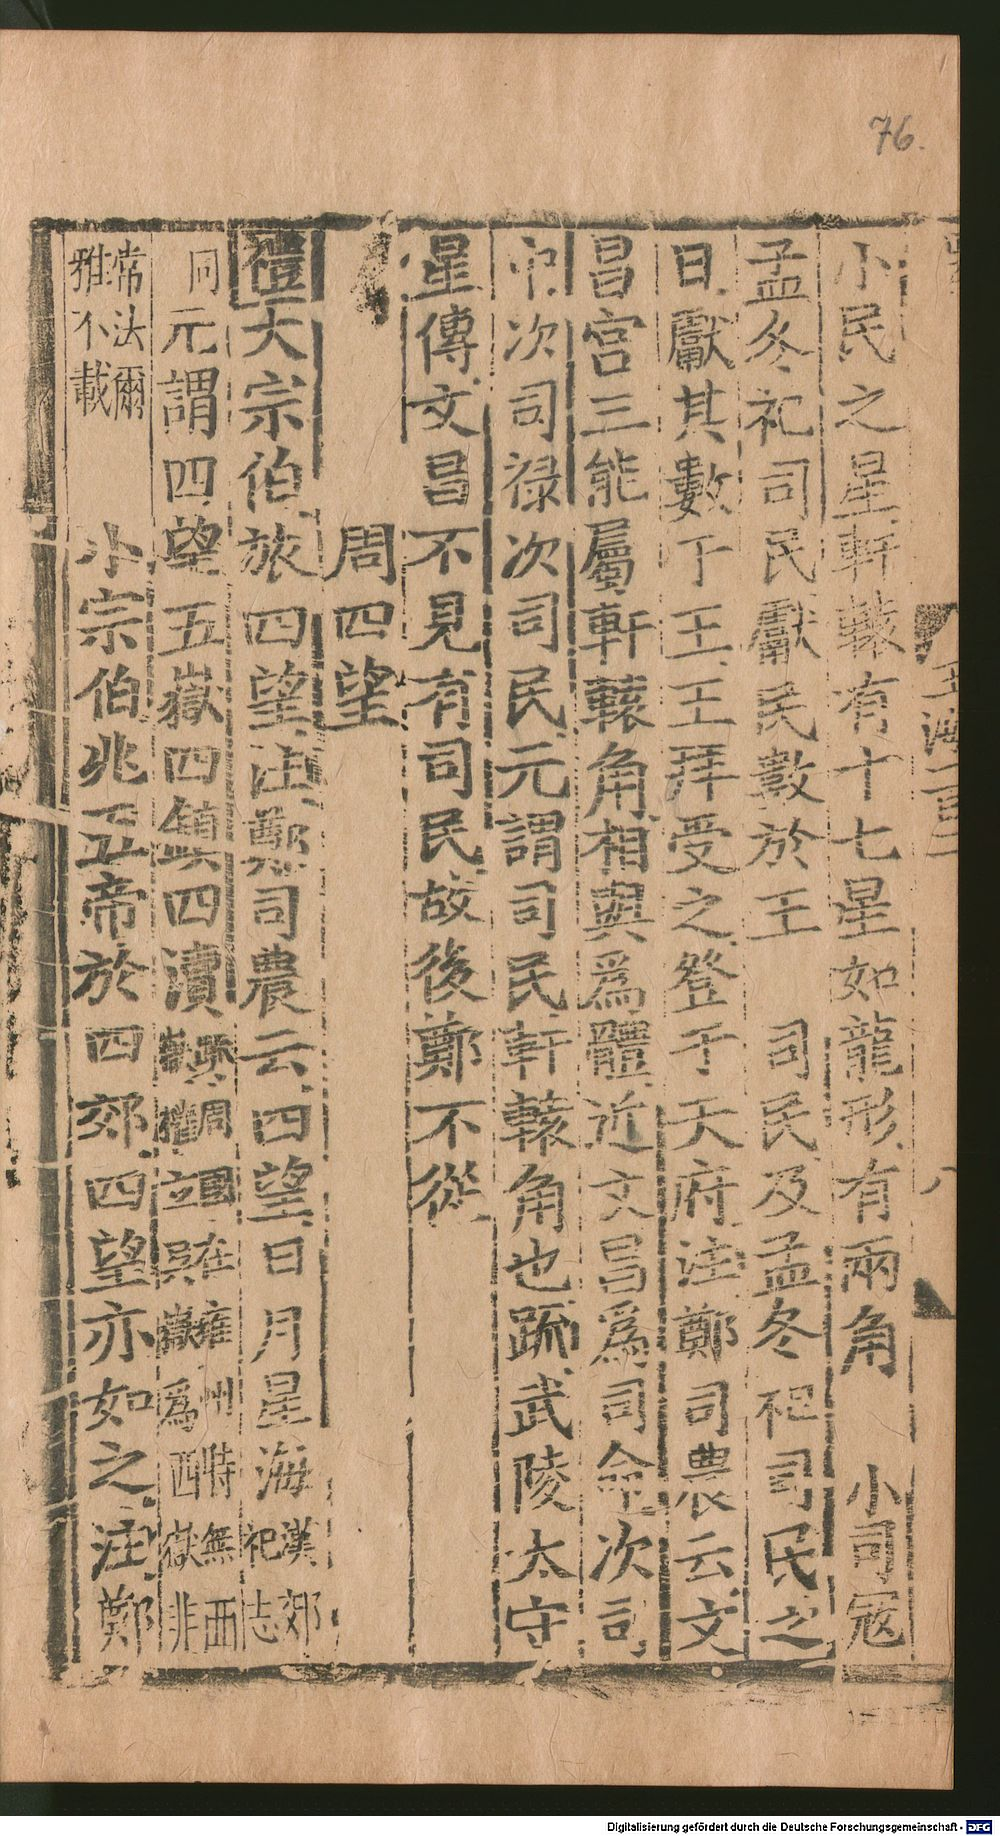 76.
小民之星軒轅有十七星如龍形有兩角　小司寇
孟冬祀司民獻民數於王　司民及孟冬祀司民之
日獻其數于王王拜受之登于天府注鄭司農云文
昌宮三能屬軒轅角相與為體近文昌為司命次司
中次司祿次司民元謂司民軒轅角也疏武陵太守
星傳文昌不見有司民故後鄭不從
周四望
禮大宗伯旅四望注鄭司農云四望日月星海漢郊祀志
同元謂四望五嶽四鎮四瀆疏周國在雍州時無西嶽權立吳嶽為西嶽非
常法爾雅不載　小宗伯兆五帝於四郊四望亦如之注鄭
玉海一百
八
Digitalisierung gefördert durch die Deutsche Forschungsgemeinschaft - DFG